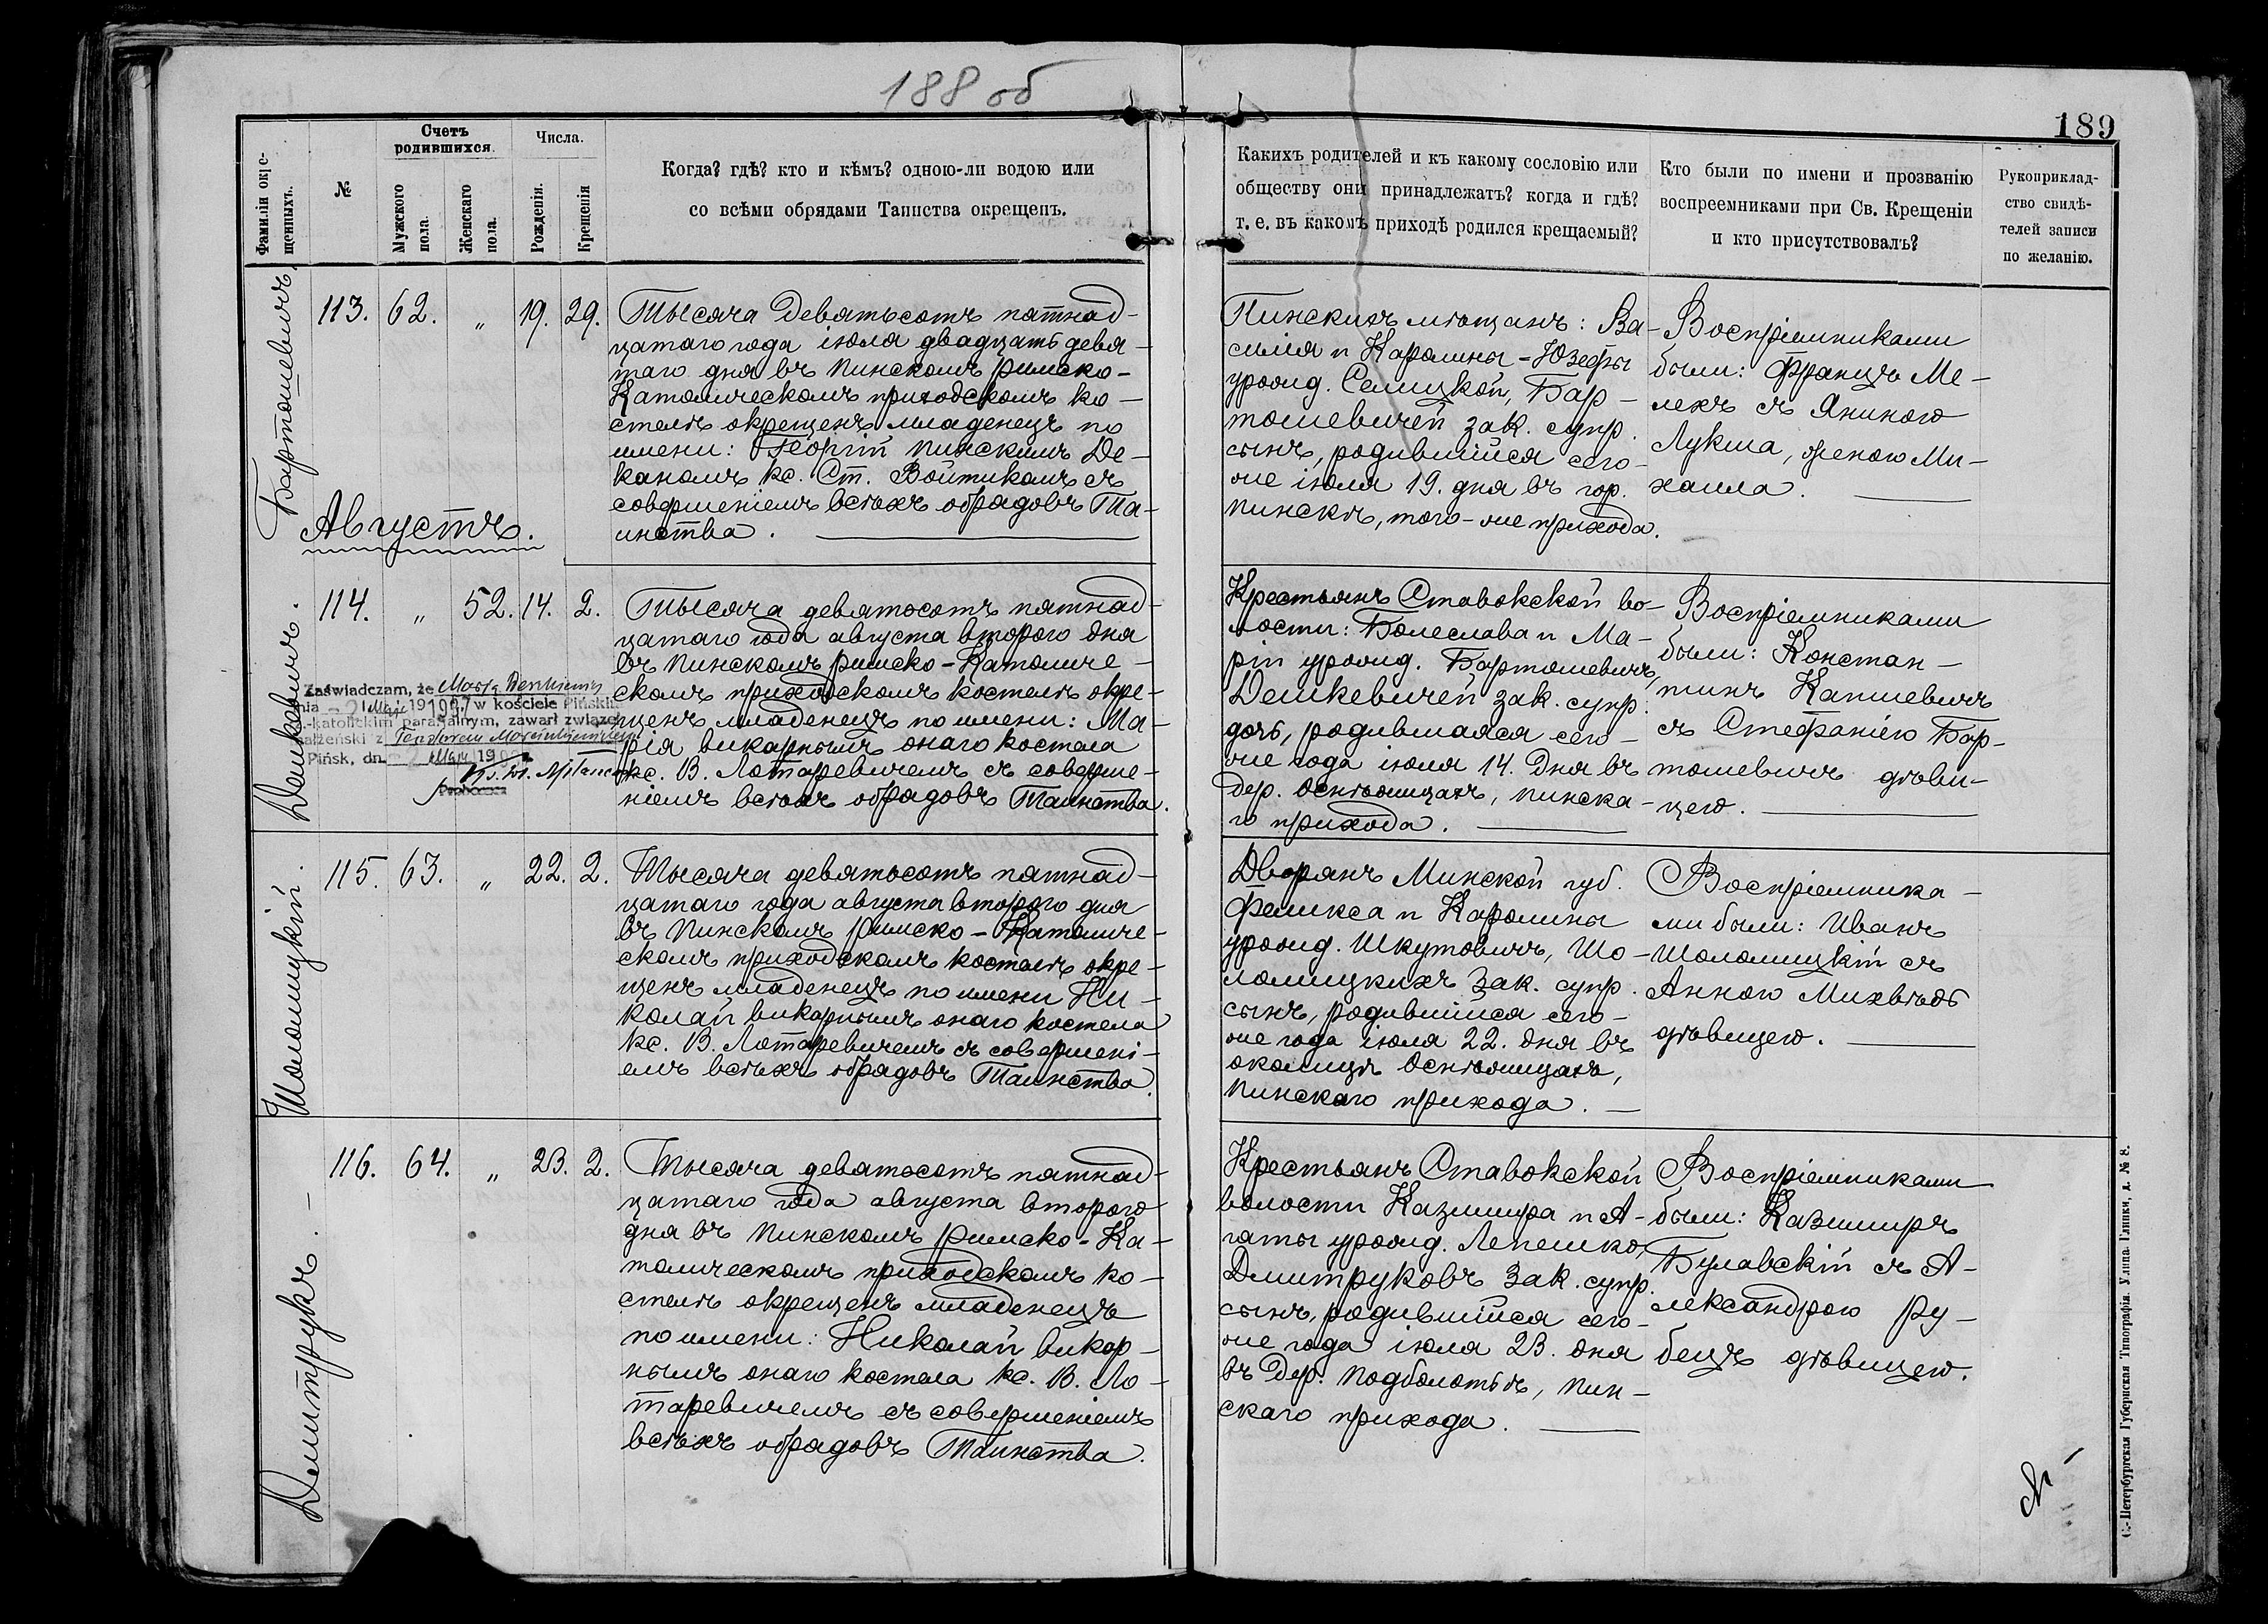 188 об
189
Фамиліи окре-
щенныхъ.
№
Счетъ
родившихся.
Мужскаго
пола.
Женскаго
пола.
Числа.
Рожденія.
Крещенія
Когда? гдѣ? кто и кѣмъ? одною-ли водою или
со всѣми обрядами Таинства окрещенъ.
Какихъ родителей и къ какому сословію или
обществу они принадлежатъ? когда и гдѣ?
т. е. въ какомъ приходѣ родился крещаемый?
Кто были по имени и прозванію
воспреемниками при Св. Крещеніи
и кто присутствовалъ?
Рукоприклад-
ство свидѣ-
телей записи
по желанію.
Бартошевичъ
113. 62. „ 19. 29.
Тысяча девятьсотъ пятнад-
цатаго года іюля двадцать девя-
таго дня въ Пинскомъ римско-
Католическомъ приходскомъ ко-
стелѣ окрещенъ младенецъ по
имени: Георгій Пинскимъ Де-
каномъ кс. Ст. Войтикомъ съ
совершеніемъ всѣхъ обрядовъ Та-
инства.
Пинскихъ мѣщанъ: Ва-
силія и Каролины-Юзефы
урожд. Селицкой, Бар-
тошевичей зак. супр.
сынъ, родившійся сего-
же іюля 19. дня въ гор.
Пинскѣ, того-же прихода.
Воспріемниками
были: Францъ Ме-
лехъ съ Яниною
Лукша, женою Ми-
хаила.
Августъ.
Демкевичъ.
114. „ 52. 14. 2.
Тысяча девятьсотъ пятнад-
цатаго года августа второго дня
въ Пинскомъ римско-Католиче-
скомъ приходскомъ костелѣ окре-
щенъ младенецъ по имени: Ма-
рія викарнымъ онаго костела
кс. В. Лотаревичемъ съ соверше-
ніемъ всѣхъ обрядовъ Таинства.
Zaświadczam, że
w kościele Pińskim
-katolickim parafjalnym, zawarł związek
małżeński z
Pińsk, dn. 19
Крестьянъ Ставокской во-
лости: Болеслава и Ма-
ріи урожд. Бартошевичъ,
Демкевичей зак. супр.
дочь, родившаяся сего-
же года іюля 14. дня въ
дер. Оснѣжицахъ, Пинска-
го прихода.
Воспріемниками
были: Констан-
тинъ Капшевичъ
съ Стефаніею Бар-
тошевичъ дѣви-
цею.
Шоломицкій.
115. 63. „ 22. 2.
Тысяча девятьсотъ пятнад-
цатаго года августа второго дня
въ Пинскомъ Римско-Католиче-
скомъ приходскомъ костелѣ окре-
щенъ младенецъ по имени Ни-
колай викарнымъ онаго костела
кс. В. Лотаревичемъ съ совершені-
емъ всѣхъ обрядовъ Таинства.
Дворянъ Минской губ.
Феликса и Каролины
урожд. Шкутовичъ, Шо-
ломицкихъ зак. супр.
сынъ, родившійся сего-
же года іюля 22. дня въ
околицѣ Оснѣжицахъ,
Пинскаго прихода.
Воспріемника-
ми были: Иванъ
Шоломицкій съ
Анною Михвѣдь
дѣвицею.
Дмитрукъ.
116. 64. „ 23. 2.
Тысяча девятьсотъ пятнад-
цатаго года августа второго
дня въ Пинскомъ Римско-Ка-
толическомъ приходскомъ ко-
стелѣ окрещенъ младенецъ
по имени: Николай викар-
нымъ онаго костела кс. В. Ло-
таревичемъ съ совершеніемъ
всѣхъ обрядовъ Таинства.
Крестьянъ Ставокской
волости Казимира и А-
гаты урожд. Лепешко,
Дмитруковъ зак. супр.
сынъ, родившійся сего-
же года іюля 23. дня
въ дер. Подболотьѣ, Пин-
скаго прихода.
Воспріемниками
были: Казимиръ
Булавскій съ А-
лександрою Ру-
бецъ дѣвицею.
С.-Петербургская Губернская Типографія. Улица Глинки, д. № 8.